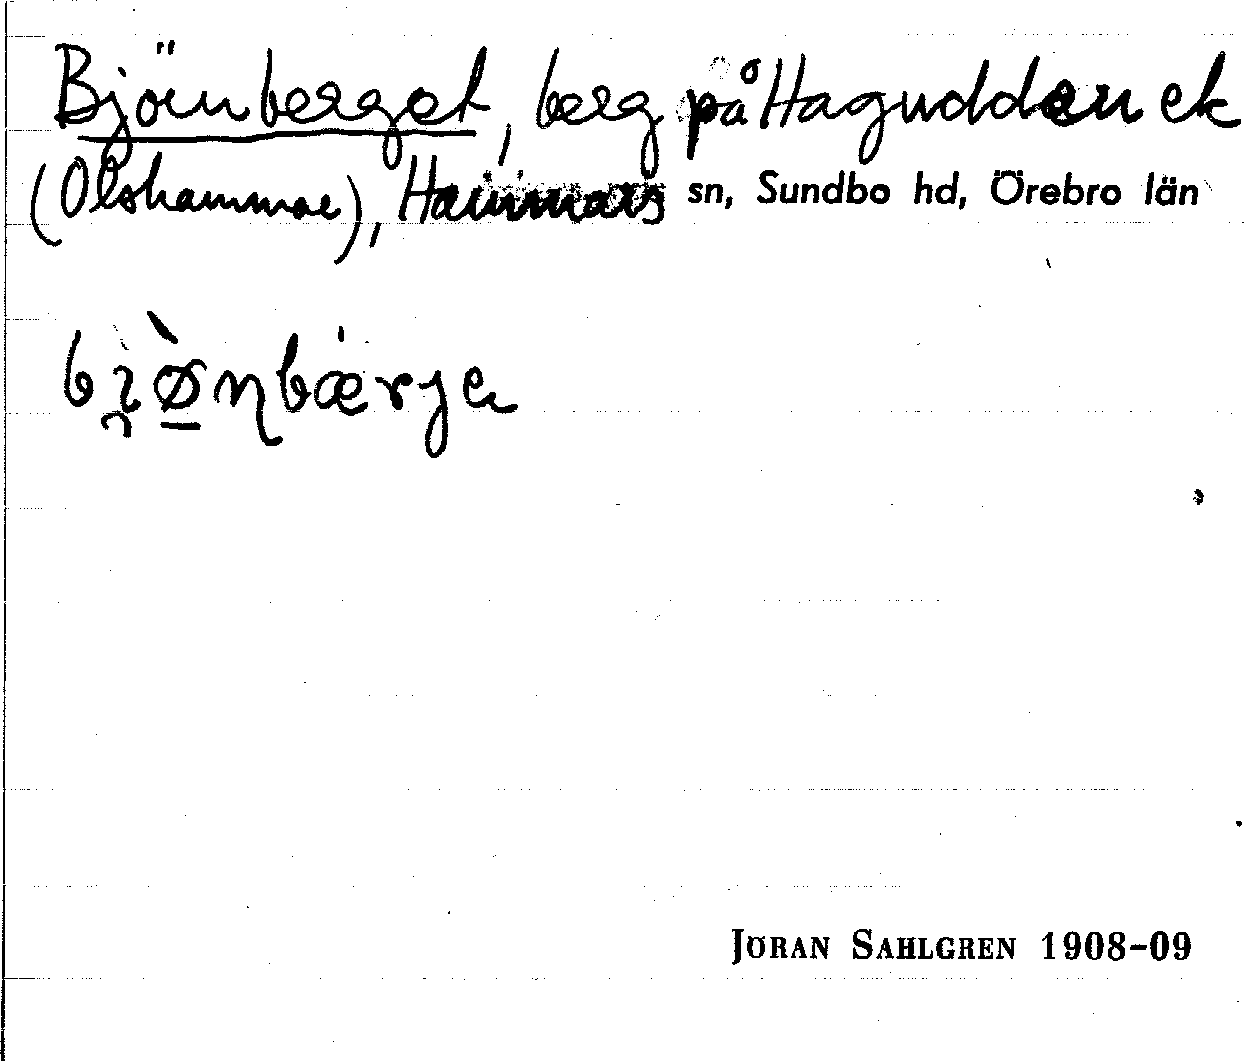 Björnberget, berg på Hagudden ek
(Olshammar), Hammars sn, Sundbo hd, Örebro län
JÖRAN SAHLGREN 1908-09